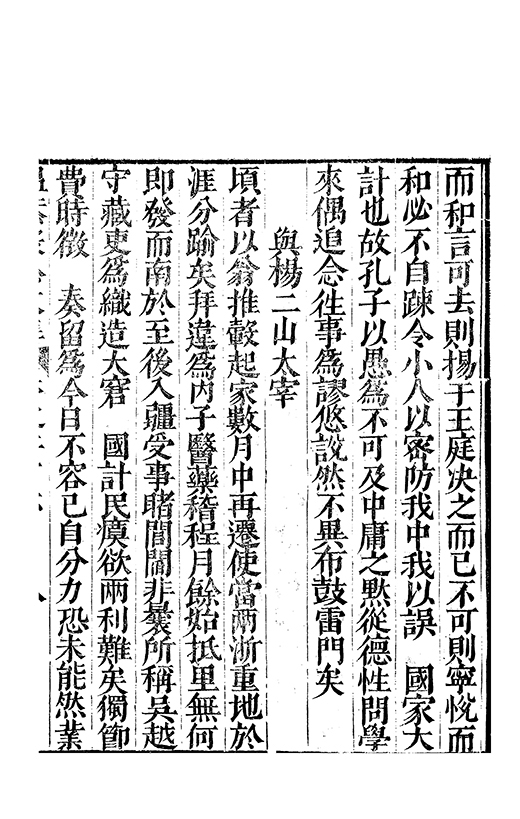 而和言可去則揚于王庭决之而已不可則寧悅而
和必不自踈令小人以宻防我中我以誤　國家大
計也故孔子以愚爲不可及中庸之黙從德性問學
來偶追念徃事爲謬悠說然不異布鼓雷門矣
與楊二山太宰
頃者以翁推轂起家數月中再遷使當兩浙重地於
涯分踰矣拜違爲丙子醫藥稽程月餘始抵里無何
即發而南於至後入疆受事睹閭閻非曩所稱吳越
守藏吏爲織造大窘　國計民瘼欲兩利難矣獨節
費時徵　奏留爲今日不容已自分力恐未能然業
八